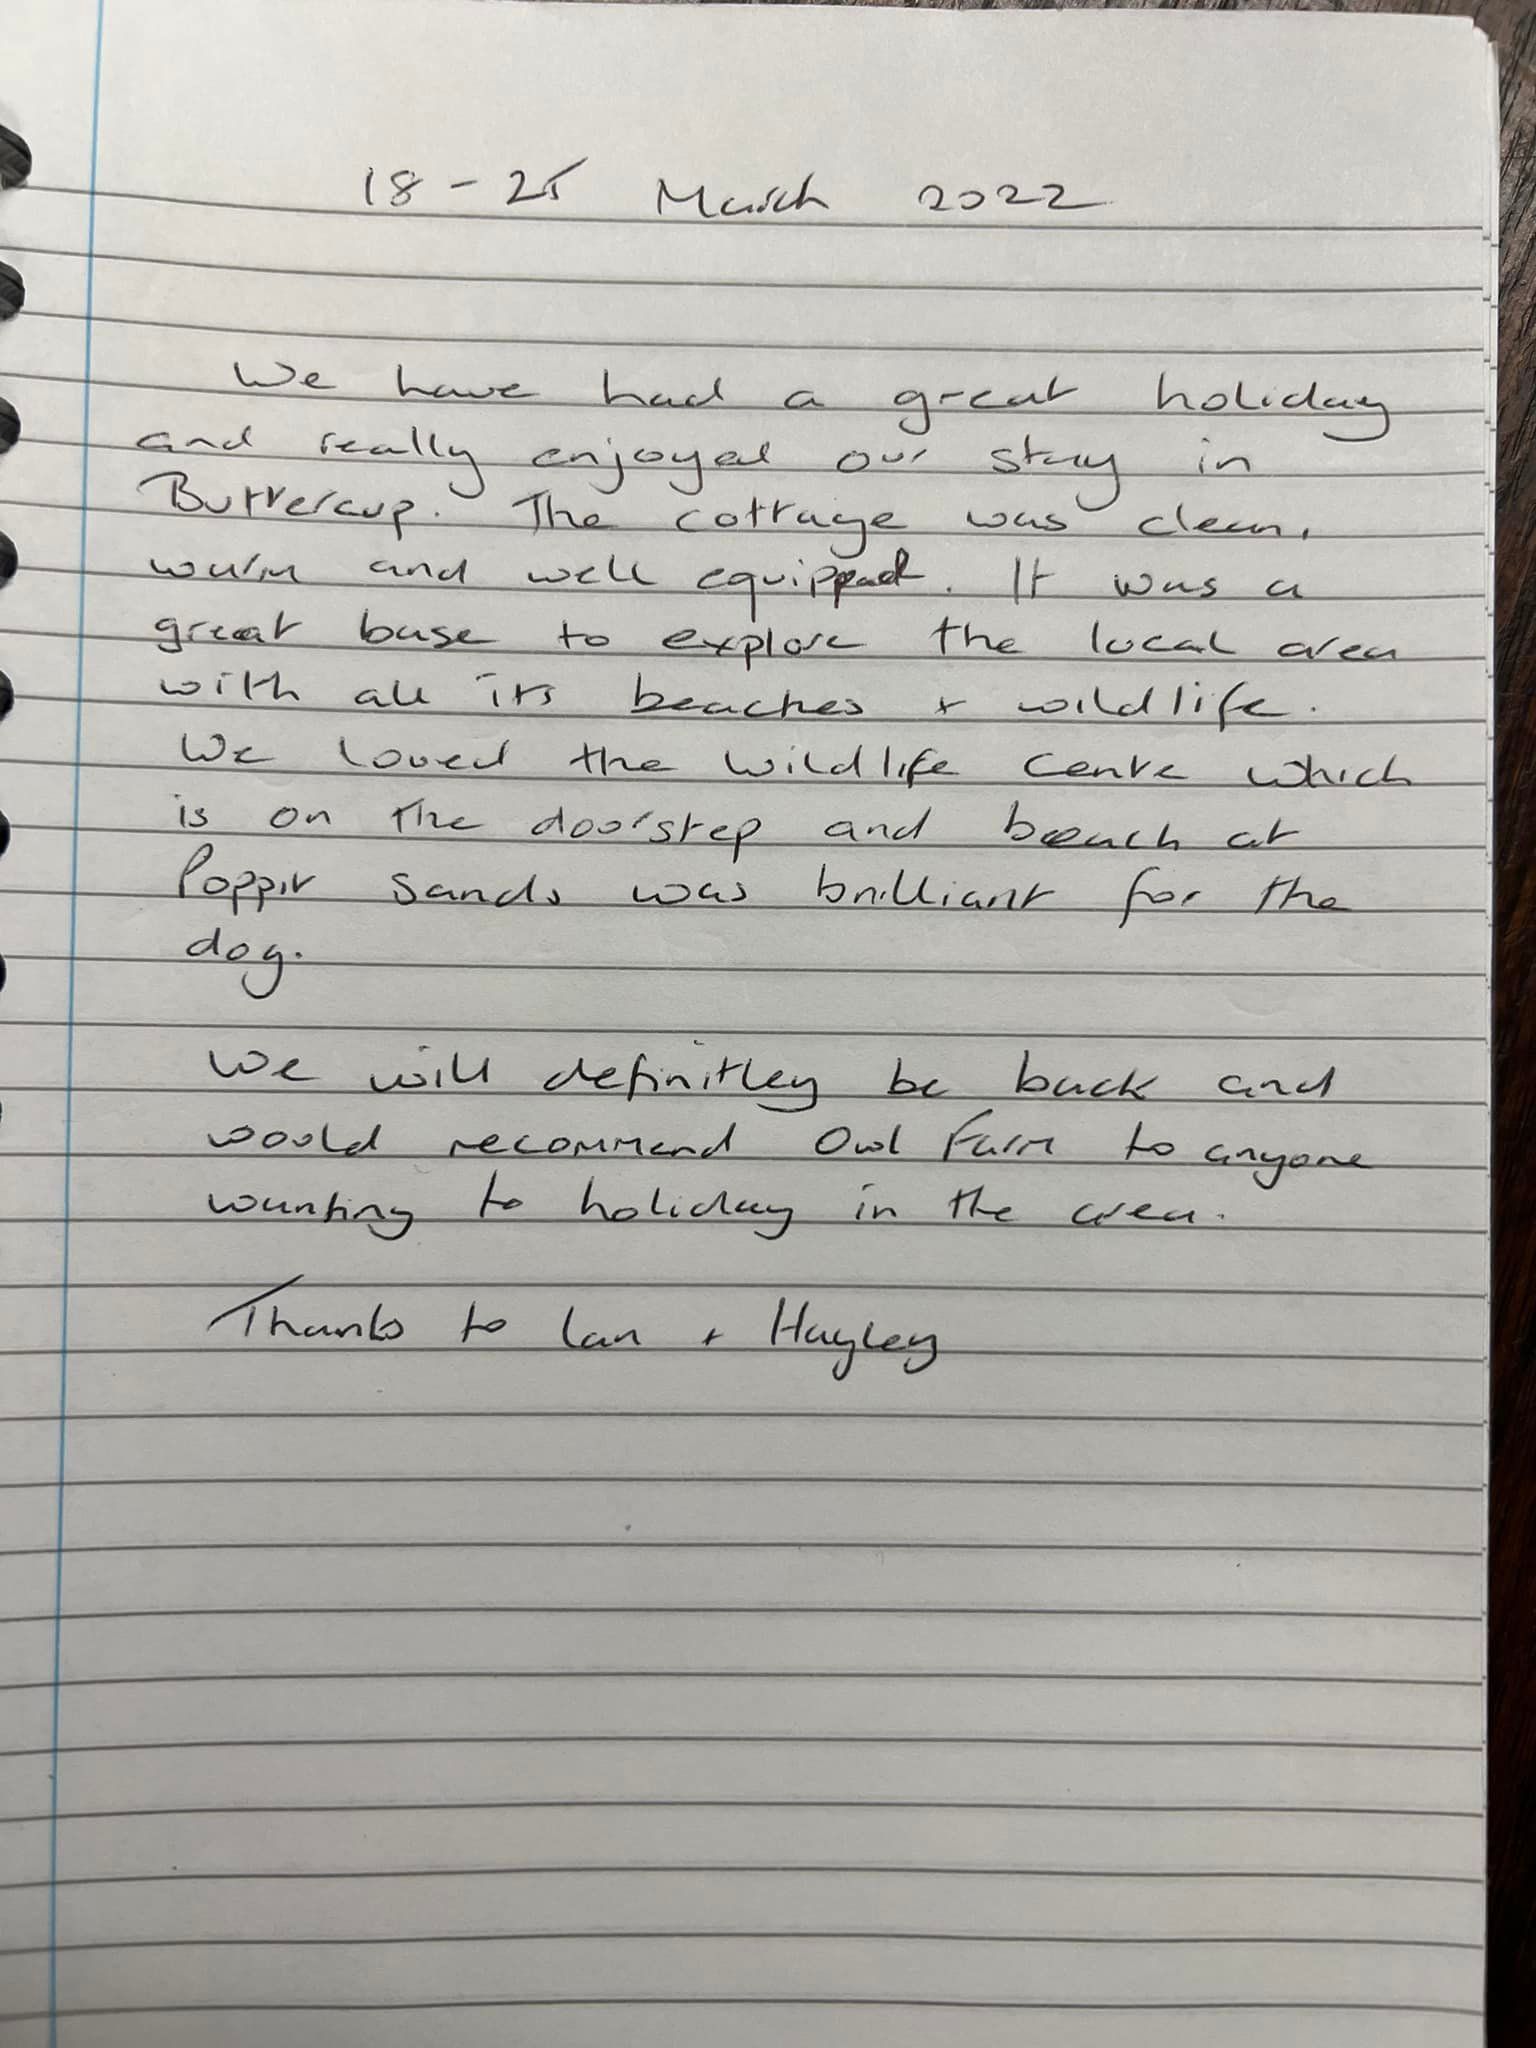 18 - 25 March 2022
We have had a great holiday
and really enjoyed our stay in
Buttercup. The cottage was clean,
warm and well equipped. It was a
great base to explore the local area
with all its beaches + wildlife.
We loved the wildlife centre which
is on the doorstep and beach at
Poppit Sands was brilliant for the
dog.
We will definitley be back and
would recommend Owl Farm to anyone
wanting to holiday in the area.
Thanks to Ian + Hayley